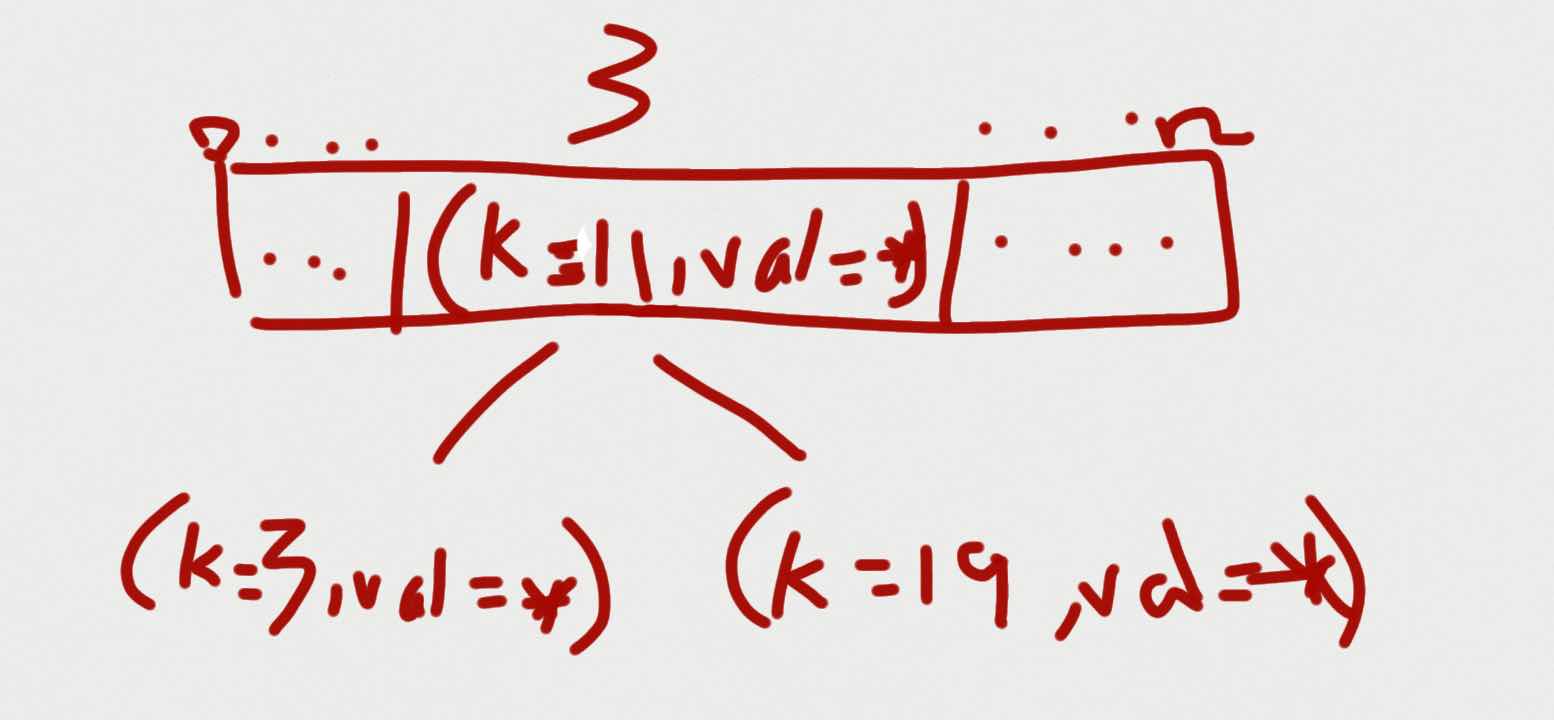 3
0 . . . . . . n
. . . (k=11, val=*) . . . .
(k=3, val=*) (k=19, val=*)